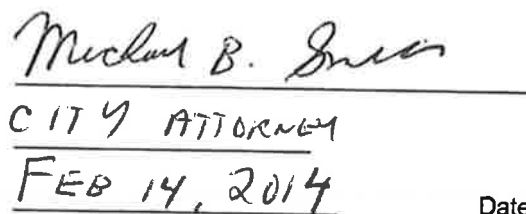 Michael B.
CITY ATTORNEY
FEB 14, 2014
Date